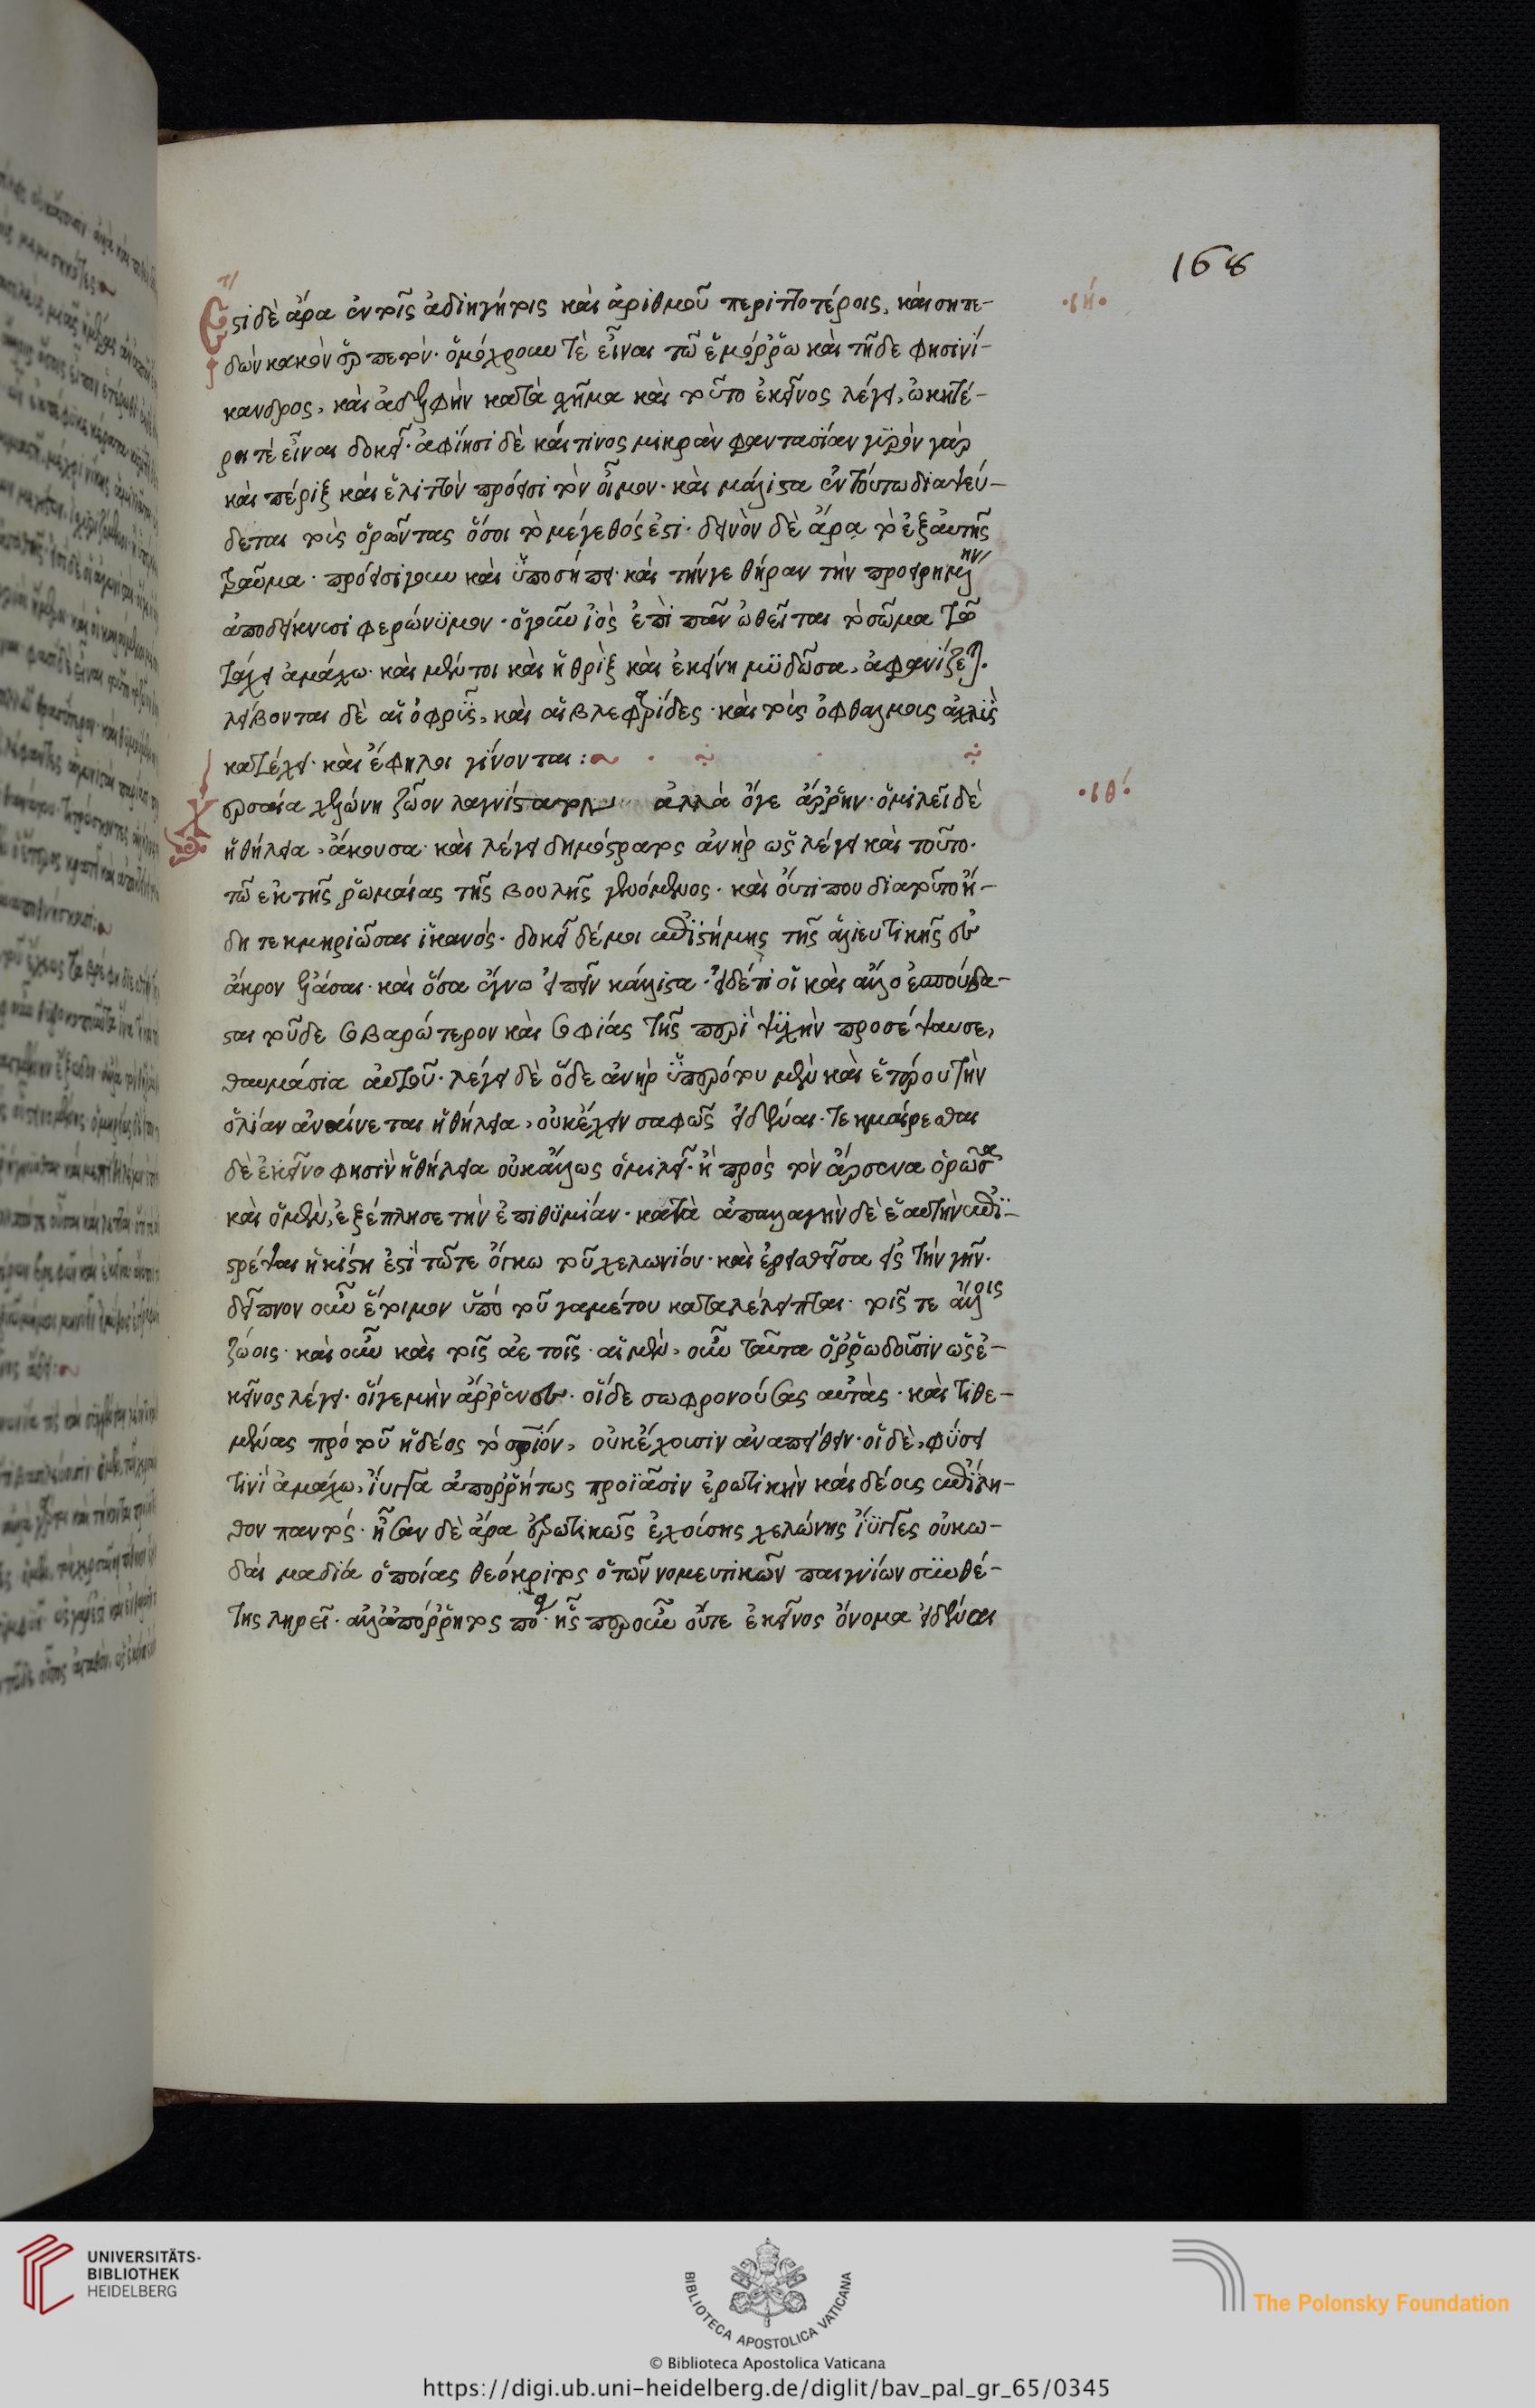 Ἐστὶ δὲ ἄρα ἐν τοῖς ἀδιηγήτοις καὶ ἀριθμοῦ περιττοτέροις, καὶ σηπε-
·ιή·
δὼν κακὸν ἑρπετόν· ὁμόχρουν τὲ εἶναι τῶ ἑμόῤῥω καὶ τῆδε φησὶ νί-
κανδρος, καὶ ἀδελφὴν κατὰ σχῆμα καὶ τοῦτο ἐκεῖνος λέγει, ὠκητέ-
ρη τὲ εἶναι δοκεῖ· ἀφίησι δὲ καί τινος μικρὰν φαντασίαν γϋρὸν γὰρ
καὶ πέριξ καὶ ἑλικτὸν πρόεισι τὸν οἶμον· καὶ μάλιστα ἐν τούτω διαψεύ-
δεται τοὺς ὁρῶντας ὅσοι τὸ μέγεθός ἐστι· δεινὸν δὲ ἄρα τὸ ἐξ αὐτῆς
τραῦμα· πρόεισι γοῦν καὶ ὑποσήπει· καὶ τήν γε θήραν τὴν προειρημένην
ἀποδείκνυσι φερώνυμον· ὁ γοῦν ἰὸς ἐπὶ πᾶν ὠθεῖται τὸ σῶμα τῶ
τάχει ἀμάχω· καὶ μέντοι καὶ ἡ θρὶξ καὶ ἐκείνη μϋδῶσα, ἀφανίζεται.
λείβονται δὲ αἱ ὀφρῦς, καὶ αἱ βλεφαρίδες· καὶ τοὺς ὀφθαλμοὺς ἀχλὺς
κατέχει· καὶ ἔφηλοι γίνονται :~
Χερσαία χελώνη ζῶον λαγνίστατον ἀλλὰ ὅγε ἄῤῥην· ὁμιλεῖ δὲ
·ιθ·
ἡ θήλεια, ἄκουσα· καὶ λέγει δημόστρατος ἀνὴρ ὡς λέγει καὶ τοῦτο.
τῶ ἐκ τῆς ῥωμαίας τῆς βουλῆς γενόμενος· καὶ οὔτι που διὰ τοῦτο ἤ-
δη τεκμηριῶσαι ἱκανός· δοκεῖ δέ μοι ἐπιστήμης τῆς ἁλιευτικῆς ἐς
ἄκρον ἐλάσαι· καὶ ὅσα ἔγνω εἰπεῖν κάλιστα· εἰ δέ τι οἱ καὶ ἄλλο ἐσπούδα-
σται τοῦδε σοβαρώτερον καὶ σοφίας τῆς περὶ ψυχὴν προσέψαυσε,
θαυμάσια αὐτοῦ· λέγει δὲ ὅδε ἀνὴρ
ἀναίνεται ἡ θήλεια, οὐκ ἔχειν σαφῶς εἰδέναι· τεκμαίρεσθαι
δὲ ἐκεῖνο φησὶν ἡ θήλεια οὐκ ἄλλως ὁμιλεῖ· ἢ πρὸς τὸν ἄρσενα ὁρῶσα
καὶ ὁ μὲν, ἐξέπλησε τὴν ἐπιθυμίαν· κατὰ ἀπαλλαγὴν δὲ ἑαυτὴν ἐπι-
στρέψαι ἡκίστη ἐστὶ τῶτε ὄγκω τοῦ χελωνίου· καὶ ἐρεισθεῖσα εἰς τὴν γῆν.
δεῖπνον οὖν ἕτοιμον ὑπὸ τοῦ γαμέτου καταλέλειπται· τοῖς τε ἄλλοις
ζώοις· καὶ οὖν καὶ τοῖς ἀετοῖς· αἱ μὲν, οὖν ταῦτα ὀῤῥωδοῦσιν ὡς ἐ-
κεῖνος λέγει· οἵγε μὴν ἄῤῥενες· οἵδε σωφρονούσας αὐτὰς· καὶ τιθε-
μένας πρὸ τοῦ ἡδέος τὸ σῶον, οὐκ ἔχουσιν ἀναπείθειν· οἱ δὲ, φύσει
τινὶ ἀμάχω, ἴυγγα ἀποῤῥήτως προϊᾶσιν ἐρωτικὴν καὶ δέους ἐπίλη-
θον παντός· ἦσαν δὲ ἄρα ἐρωτικῶς ἐχούσης χελώνης ἴϋγγες οὐκ ὠ-
δαὶ μαδία ὁποίας θεόκριτος ὁ τῶν νομευτικῶν παιγνίων συνθέ-
της ληρεῖ· ἀλλ' ἀπόῤῥητος πόα· ἧς περ οὖν οὔτε ἐκεῖνος ὄνομα εἰδέναι
UNIVERSITÄTS-
BIBLIOTHEK
HEIDELBERG
BIBLIOTECA APOSTOLICA VATICANA
© Biblioteca Apostolica Vaticana
The Polonsky Foundation
https://digi.ub.uni-heidelberg.de/diglit/bav_pal_gr_65/0345